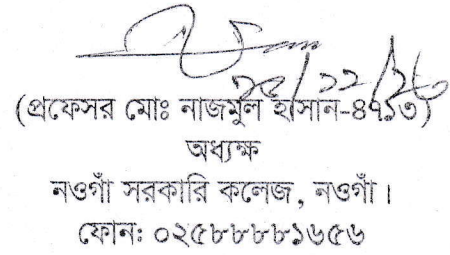 (প্রফেসর মোঃ নাজমুল হাসান-৪৭১৩)
অধ্যক্ষ
নওগাঁ সরকারি কলেজ, নওগাঁ।
ফোন: ০২৫৮৮৮৮১৬৫৬